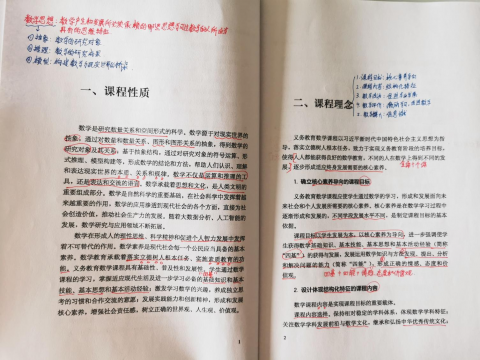 数学思想：数学产生和发展所必须依赖的那些思想
①抽象：数学的研究对象
②推理：
③模型：构建数学与现实世界的桥梁
一、课程性质
数学是研究数量关系和空间形式的科学。数学源于对现实世界的
抽象，通过对数量和数量关系、图形和图形关系的抽象，得到数学的
研究对象及其关系；基于抽象结构，通过对研究对象的符号运算、形
式推理、模型构建等，形成数学的结论和方法，帮助人们认识、理解
和表达现实世界的本质、关系和规律。数学不仅是运算和推理的工
具，还是表达和交流的语言。数学承载着思想和文化，是人类文明的
重要组成部分。数学是自然科学的重要基础，在社会科学中发挥着越
来越重要的作用，数学的应用渗透到现代社会的各个方面，直接为社
会创造价值，推动社会生产力的发展。随着大数据分析、人工智能的
发展，数学研究与应用领域不断拓展。
数学在形成人的理性思维、科学精神和促进个人智力发展中发挥
着不可替代的作用。数学素养是现代社会每一个公民应当具备的基本
素养。数学教育承载着落实立德树人根本任务、实施素质教育的功
能。义务教育数学课程具有基础性、普及性和发展性。学生通过数学
课程的学习，掌握适应现代生活及进一步学习必备的基础知识和基本
技能、基本思想和基本活动经验；激发学习数学的兴趣，养成独立思
考的习惯和合作交流的意愿；发展实践能力和创新精神，形成和发展
核心素养，增强社会责任感，树立正确的世界观、人生观、价值观。
1
二、课程理念
义务教育数学课程以习近平新时代中国特色社会主义思想为指
导，落实立德树人根本任务，致力于实现义务教育阶段的培养目标，
使得人人都能获得良好的数学教育，不同的人在数学上得到不同的发
展，逐步形成适应终身发展需要的核心素养。
1. 确立核心素养导向的课程目标
义务教育数学课程应使学生通过数学的学习，形成和发展面向未
来社会和个人发展所需要的核心素养。核心素养是在数学学习过程中
逐渐形成和发展的，不同学段发展水平不同，是制定课程目标的基本
依据。
课程目标以学生发展为本，以核心素养为导向，进一步强调使学
生获得数学基础知识、基本技能、基本思想和基本活动经验（简称
“四基”），发展运用数学知识与方法发现、提出、分
析和解决问题的能力（简称“四能”），形成正确的情感、态度和价
值观。
2. 设计体现结构化特征的课程内容
数学课程内容是实现课程目标的重要载体。
课程内容选择。保持相对稳定的学科体系，体现数学学科特征；
关注数学学科发展前沿与数学文化，继承和弘扬中华优秀传统文化；
2